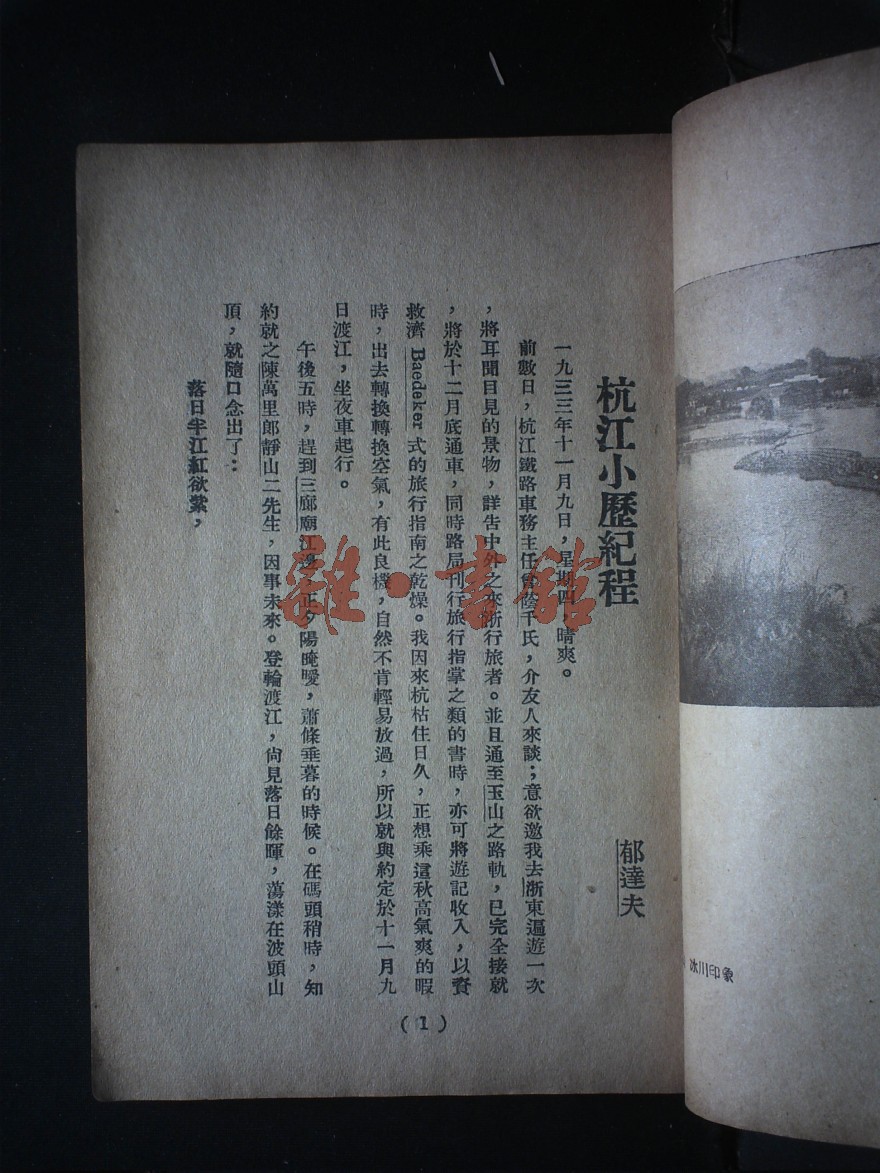 杭江小歷紀程
郁達夫
一九三三年十一月九日，星期四，晴爽。
前數日，杭江鐵路車務主任曾蔭千氏，介友人來談；意欲邀我去浙東遍遊一次
，將耳聞目見的景物，詳告中外之來浙行旅者。並且通至玉山之路軌，已完全接就
，將於十二月底通車，同時路局刊行旅行指掌之類的書時，亦可將遊記收入，以資
救濟 Baedeker 式的旅行指南之乾燥。我因來杭枯住日久，正想乘這秋高氣爽的暇
時，出去轉換轉換空氣，有此良機，自然不肯輕易放過，所以就與約定於十一月九
日渡江，坐夜車起行。
午後五時，趕到三廊廟江邊，正夕陽晻曖，蕭條垂暮的時候。在碼頭稍時，知
約就之陳萬里郎靜山二先生，因事未來。登輪渡江，尙見落日餘暉，蕩漾在波頭山
頂，就隨口念出了：
落日半江紅欲紫，
(1)
冰川印象
雜·書館